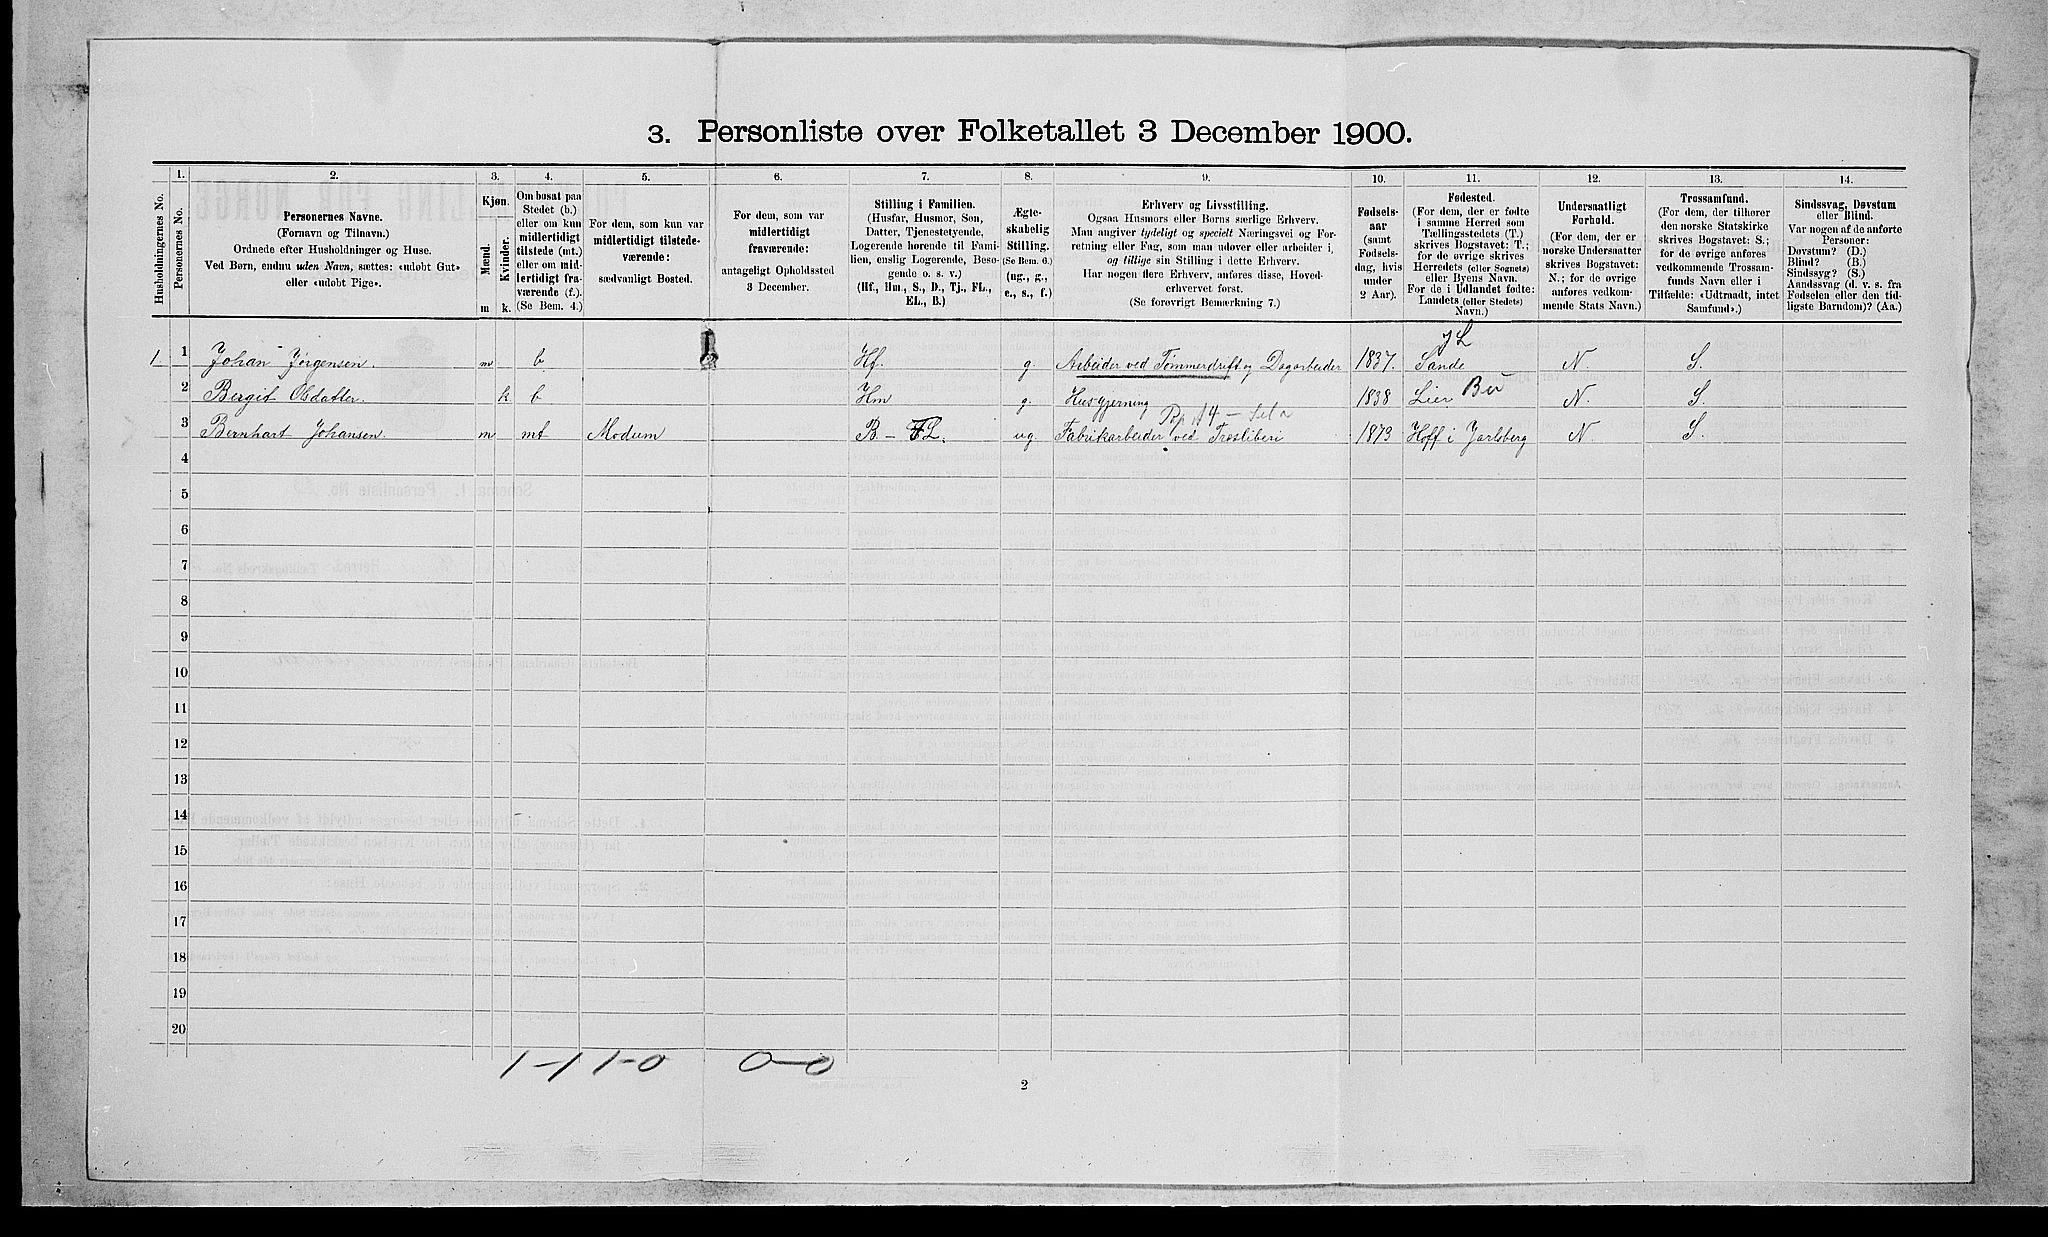 3. Personliste over Folketallet 3 December 1900.
Husholdningernes No.
1.
Personernes No.
2.
Personernes Navne.
(Fornavn og Tilnavn.)
Ordnede efter Husholdninger og Huse.
Ved Børn, endnu uden Navn, sættes: «udøbt Gut»
eller «udøbt Pige».
3.
Kjøn.
Mænd.
Kvinder.
m
k.
4.
Om bosat paa
Stedet (b.)
eller om kun
midlertidigt
tilstede (mt.)
eller om mid-
lertidigt fra-
værende (f.).
(Se Bem. 4.)
5.
For dem, som kun var
midlertidigt tilstede-
værende:
sædvanligt Bosted.
6.
For dem, som var
midlertidigt
fraværende:
antageligt Opholdssted
3 December.
7.
Stilling i Familien.
(Husfar, Husmor, Søn,
Datter, Tjenestetyende,
Logerende hørende til Fami-
lien, enslig Logerende, Besø-
gende o. s. v.)
(Hf., Hm., S., D., Tj., FL.,
EL., B.)
8.
Ægte-
skabelig
Stilling.
(Se Bem. 6.)
(ug., g.,
e., s., f.)
9.
Erhverv og Livsstilling.
Ogsaa Husmors eller Børns særlige Erhverv.
Man angiver tydeligt og specielt Næringsvei og For-
retning eller Fag, som man udøver eller arbeider i,
og tillige sin Stilling i dette Erhverv.
Har nogen flere Erhverv, anføres disse, Hoved-
erhvervet først.
(Se forøvrigt Bemærkning 7.)
10.
Fødsels-
aar
(samt
Fødsels-
dag, hvis
under
2 Aar).
11.
Fødested.
(For dem, der er fødte
i samme Herred som
Tællingsstedets (T.)
skrives Bogstavet: T.;
for de øvrige skrives
Herredets (eller Sognets)
eller Byens Navn.
For de i Udlandet fødte:
Landets (eller Stedets)
Navn.)
12.
Undersaatligt
Forhold.
(For dem, der er
norske Undersaatter
skrives Bogstavet:
N.; for de øvrige
anføres vedkom-
mende Stats Navn.)
13.
Trossamfund.
(For dem, der tilhører
den norske Statskirke
skrives Bogstavet: S.;
for de øvrige anføres
vedkommende Trossam-
funds Navn eller i
Tilfælde: «Udtraadt, intet
Samfund».)
14.
Sindssvag, Døvstum
eller Blind.
Var nogen af de anførte
Personer:
Døvstum? (D.)
Blind? (B.)
Sindssyg? (S.)
Aandssvag (d. v. s. fra
Fødselen eller den tid-
ligste Barndom)? (Aa.)
JL
1 1 Johan Jørgensen. m b Hf. g. Arbeider ved Tømmerdrift og Dagarbeider 1837. Sande N. S.
2 Bergit Olsdatter k b Hm g. Husgjerning 1838 Lier Bu N. S.
3 Bernhart Johansen. m mt Modum B – FL. ug. Fabrikarbeider ved Træsliberi 1873 Hoff i Jarlsberg N. S.
4
5
6
7
8
9
10
11
12
13
14
15
16
17
18
19
20
1-1 1-0 0-0
2